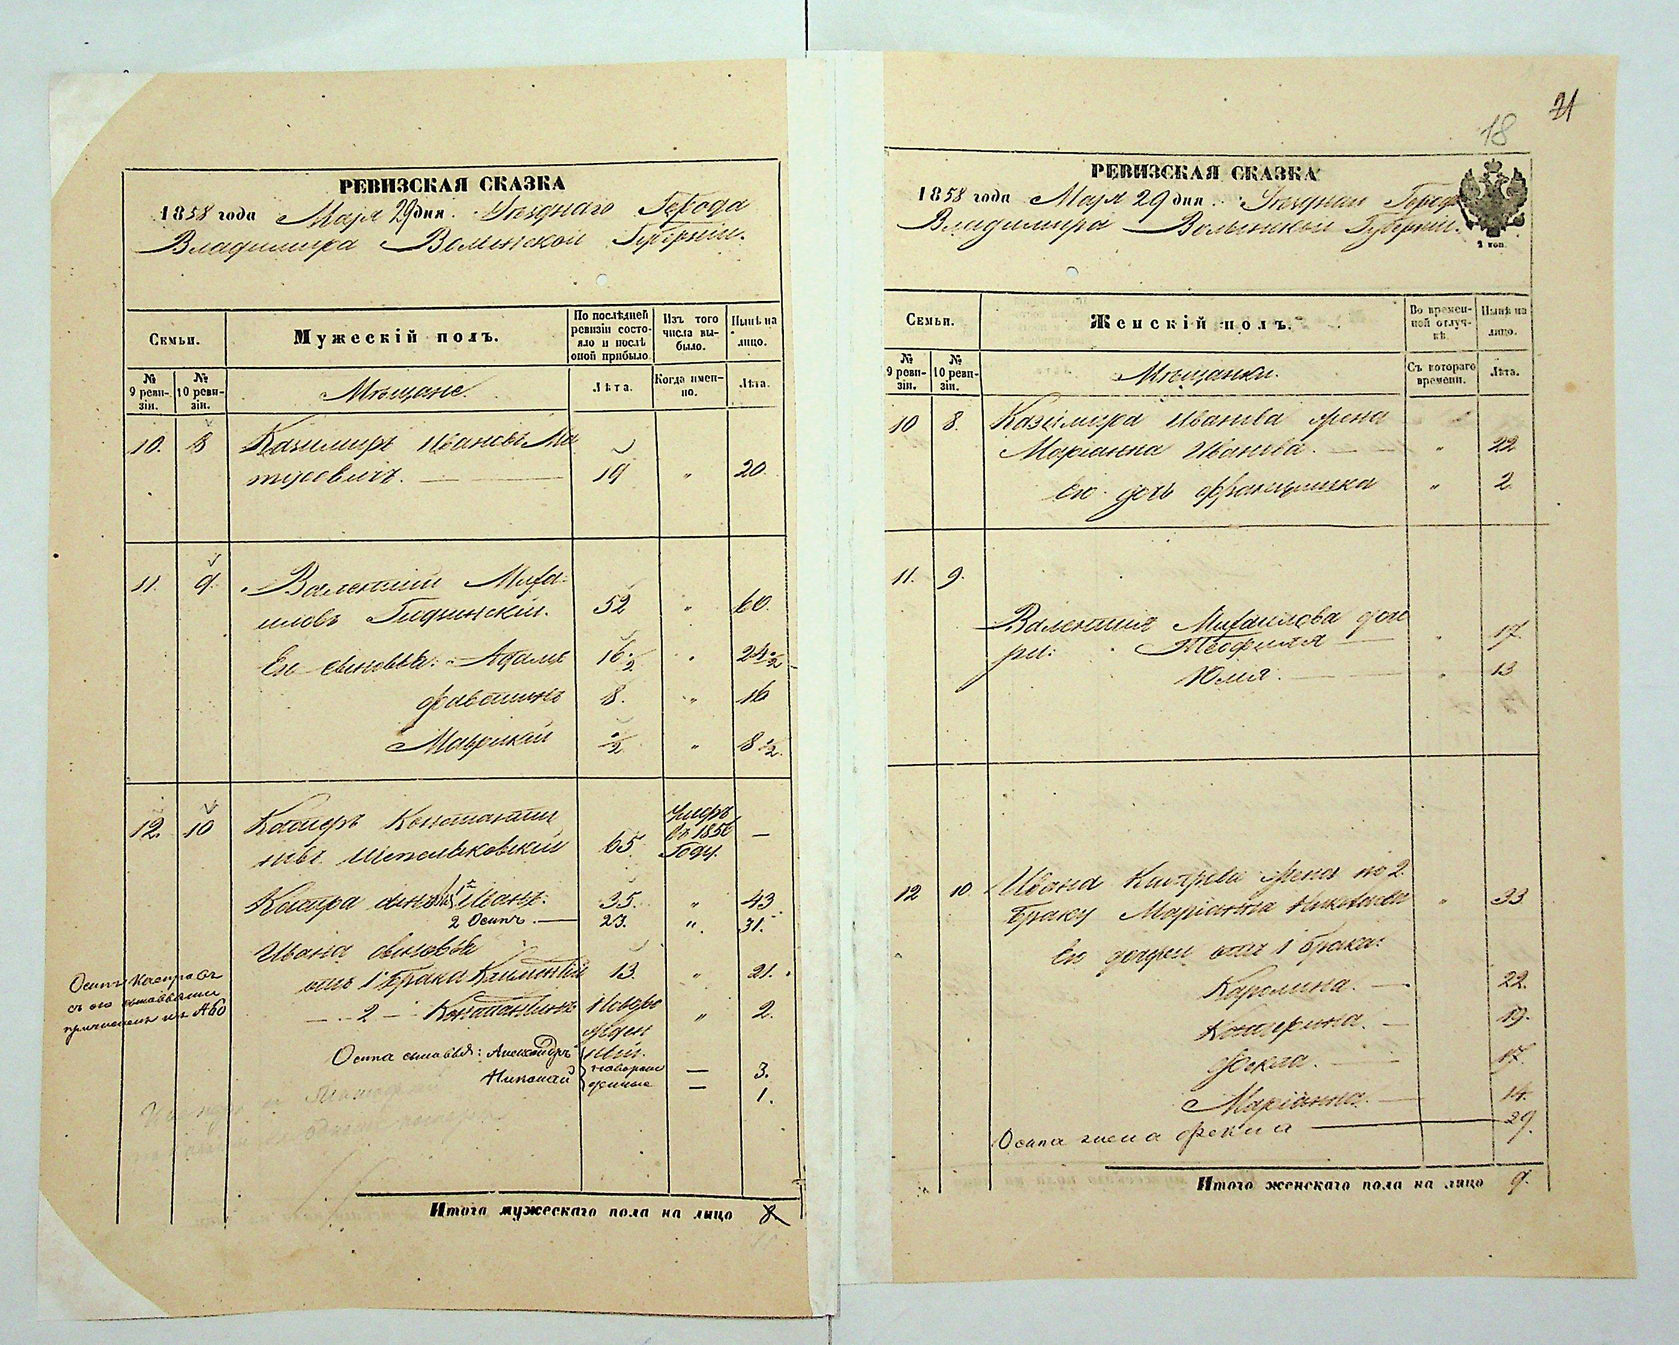 РЕВИЗСКАЯ СКАЗКА
1858 года Марта 29 дня. Уезднаго Города
Владимира Волынской Губерніи.
Семьи.
Мужескій полъ.
По послѣдней ревизіи состояло и послѣ оной прибыло
Изъ того числа выбыло.
Нынѣ на лицо.
№ 9 ревизіи.
№ 10 ревизіи.
Мѣщане.
Лѣта.
Когда именно.
Лѣта.
10. 8 Казимиръ Ивановъ Ма
тусевичъ. 19 " 20.
11. 9. Валентій Михай
ловъ 52 " 60.
Его сыновья: Адамъ 16 ½ " 24 ½
8. " 16
Маврикій ½ " 8 ½.
12. 10 Касперъ Константи
новъ 65 Умеръ въ 1856 Году. —
Каспра сыновья 1й Иванъ. 35. " 43
2 Осипъ. — 23. " 31.
Ивана сыновья
отъ 1 брака Климентій 13. " 21.
— 2 — Константинъ Новорожденный. " 2.
Осипа сыновья: Александръ новорож — 3.
Николай денные — 1.
Осипъ Каспровъ
съ его сыновьями
причислен по № 60
Итого мужескаго пола на лицо 8
21
18
РЕВИЗСКАЯ СКАЗКА
1858 года Марта 29 дня Уезднаго Города
Владимира Волынской Губерніи.
2 коп
Семьи.
Женскій полъ.
Во временной отлучкѣ.
Нынѣ на лицо.
№ 9 ревизіи.
№ 10 ревизіи.
Мѣщанки.
Съ котораго времени.
Лѣта.
10 8. Казимира Иванова жена
Маріанна Иванова. " 22
Ею дочь Францишка " 2
11. 9.
Валентія Михайлова доче
ри: Теофиля " 17.
Юлія. " 13
12 10 Ивана Каспрова жена по 2
браку Маріанна " 33
Ею дочери отъ 1 брака:
Каролина. — 22.
Катерина. — 19.
Фекла. — 17.
Маріанна. — 14.
Осипа жена Фекла — 29.
Итого женскаго пола на лицо 9.